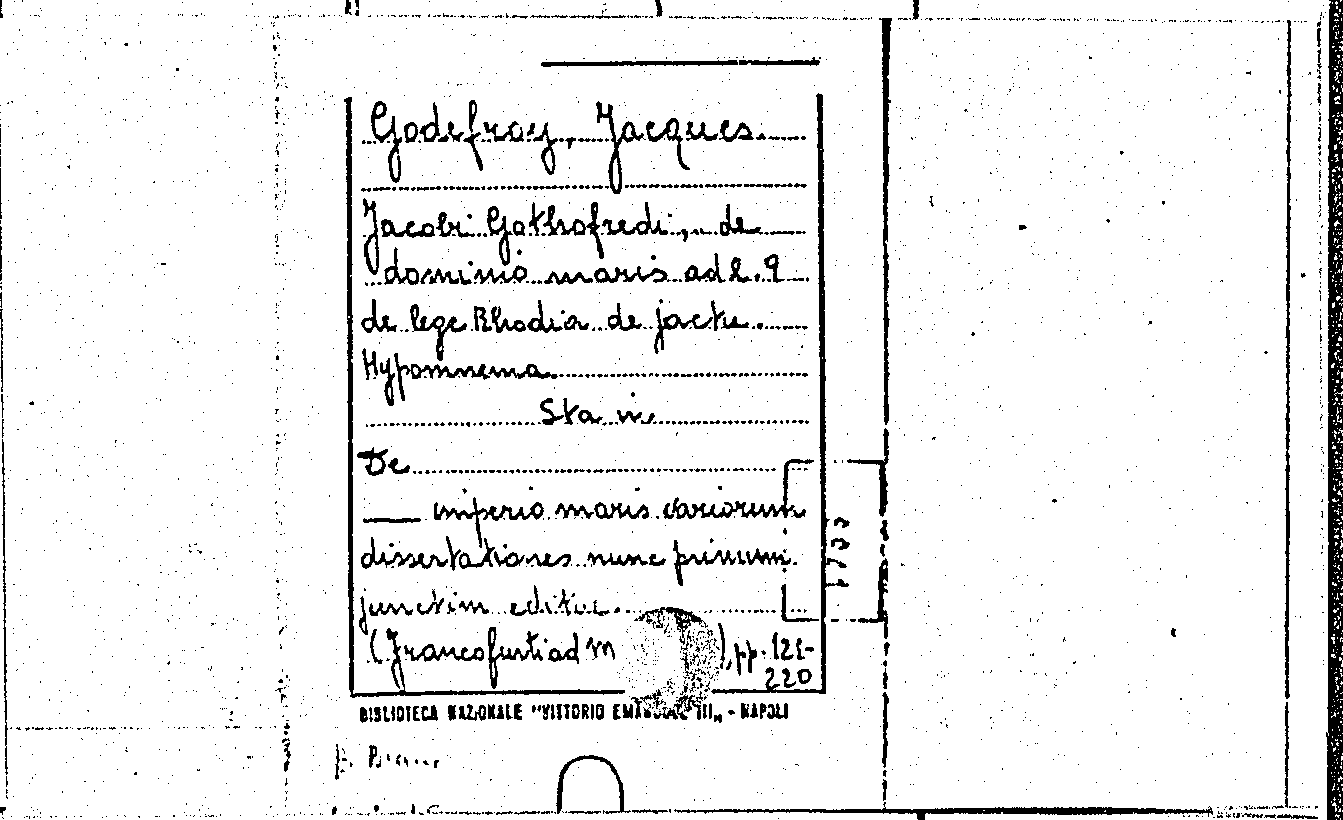 Godefroy, Jacques.
Jacobi Gothofredi, de
dominio maris ad l. 9
de lege Rhodia de jactu.
Hypomnema.
Sta in
De
imperio maris variorum
dissertationes nunc primum
junctim editae.
(Francofurti ad M ), pp. 121-
220
BIBLIOTECA NAZIONALE "VITTORIO EMANUELE III„ - NAPOLI